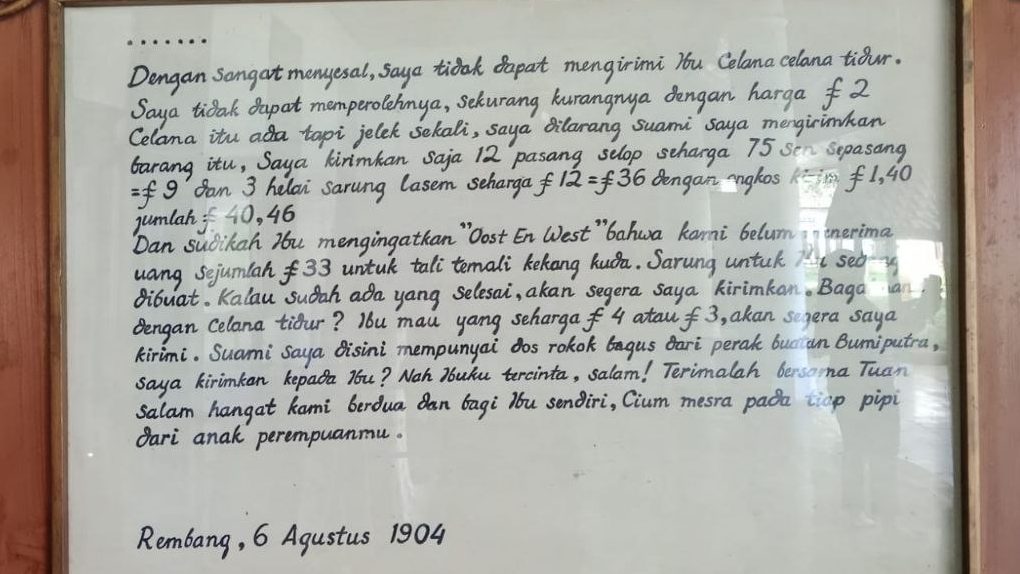 .......
Dengan sangat menyesal, saya tidak dapat mengirimi Ibu Celana celana tidur.
Saya tidak dapat memperolehnya, sekurang kurangnya dengan harga £ 2
Celana itu ada tapi jelek sekali, saya dilarang suami saya mengirimkan
barang itu, Saya kirimkan saja 12 pasang selop seharga 75 sen sepasang
=£ 9 dan 3 helai sarung lasem seharga £ 12 = £ 36 dengan ongkos kirim £ 1,40
jumlah £ 40,46
Dan sudikah Ibu mengingatkan "Oost En West" bahwa kami belum menerima
uang sejumlah £ 33 untuk tali temali kekang kuda. Sarung untuk Ibu sedang
dibuat. Kalau sudah ada yang selesai, akan segera saya kirimkan.
dengan celana tidur? Ibu mau yang seharga £ 4 atau £ 3, akan segera saya
kirimi. Suami saya disini mempunyai dos rokok bagus dari perak buatan Bumiputra,
saya kirimkan kepada Ibu? Nah Ibuku tercinta, salam! Terimalah bersama Tuan
salam hangat kami berdua dan bagi Ibu sendiri, Cium mesra pada tiap pipi
dari anak perempuanmu.
Rembang, 6 Agustus 1904